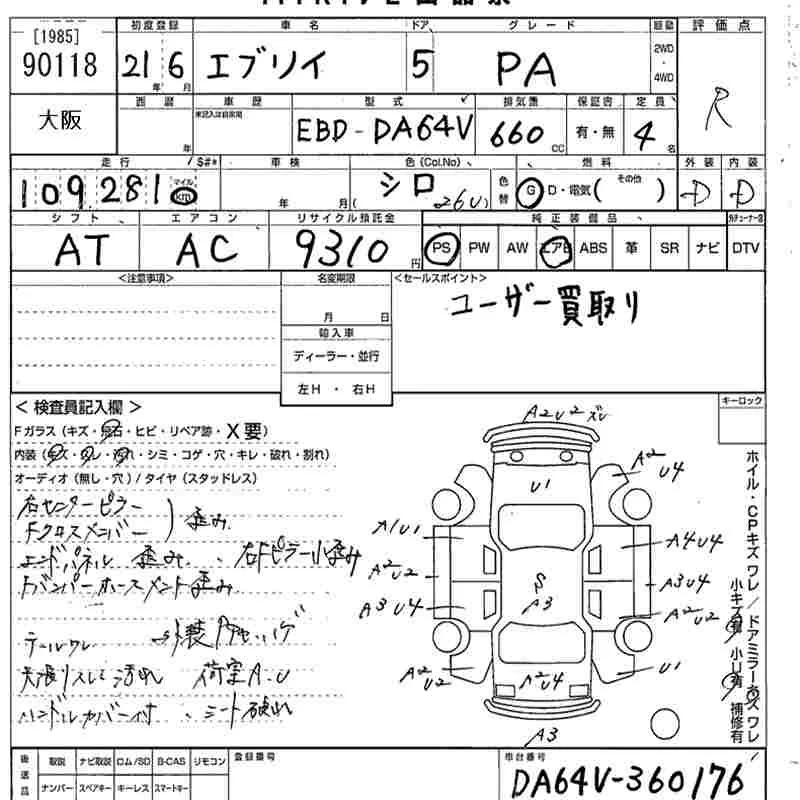 [1985]
90118
初度登録 車名 ドア グレード 駆動 評価点
21年 6月 エブリイ 5 PA 2WD 4WD R
大阪
西暦 年 車歴 未記入は自家用 型式 EBD-DA64V 排気量 660 CC 保証書 有・無 定員 4名
走行 $#* 車検 色(Col.No) 色替 燃料 外装 内装
109,281 マイル km 年 月 シロ (26U) G D・電気( その他 ) D D
シフト エアコン リサイクル預託金 純正装備品
AT AC 9310円 PS PW AW エアB ABS 革 SR ナビ DTV
<注意事項> 名変期限 <セールスポイント>
月 日 ユーザー買取り
輸入車
ディーラー・並行
左H ・ 右H
キーロック
< 検査員記入欄 >
Fガラス (キズ・飛石・ヒビ・リペア跡・X要)
内装 (キズ・スレ・汚れ・シミ・コゲ・穴・キレ・破れ・割れ)
オーディオ (無し・穴) / タイヤ (スタッドレス)
右センターピラー
Fクロスメンバー ) 歪み
エンドパネル 歪み、右Fピラー小歪み
テールワレ
天張りスレ 汚れ 荷室A・U
ハンドルカバー付、シート破れ
A2U2
U1
A2 U4
A1U1
A4U4
A2U2
A3U4
S
A3
A3U4
A2U2
A2U2
A2U4
U1
A3
ホイル・CPキズ ワレ / ドアミラーキズ ワレ /
小キズ有 小U有 補修有
後送品 取説 ナビ取説 ロム/SD B-CAS リモコン 登録番号 車台番号
ナンバー スペアキー キーレス スマートキー DA64V-360176